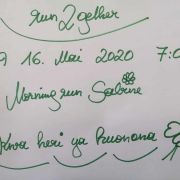 run2gether
9 16. Mai 2020 7:0
Morning run Sabine
Kwa heri ya kuonana